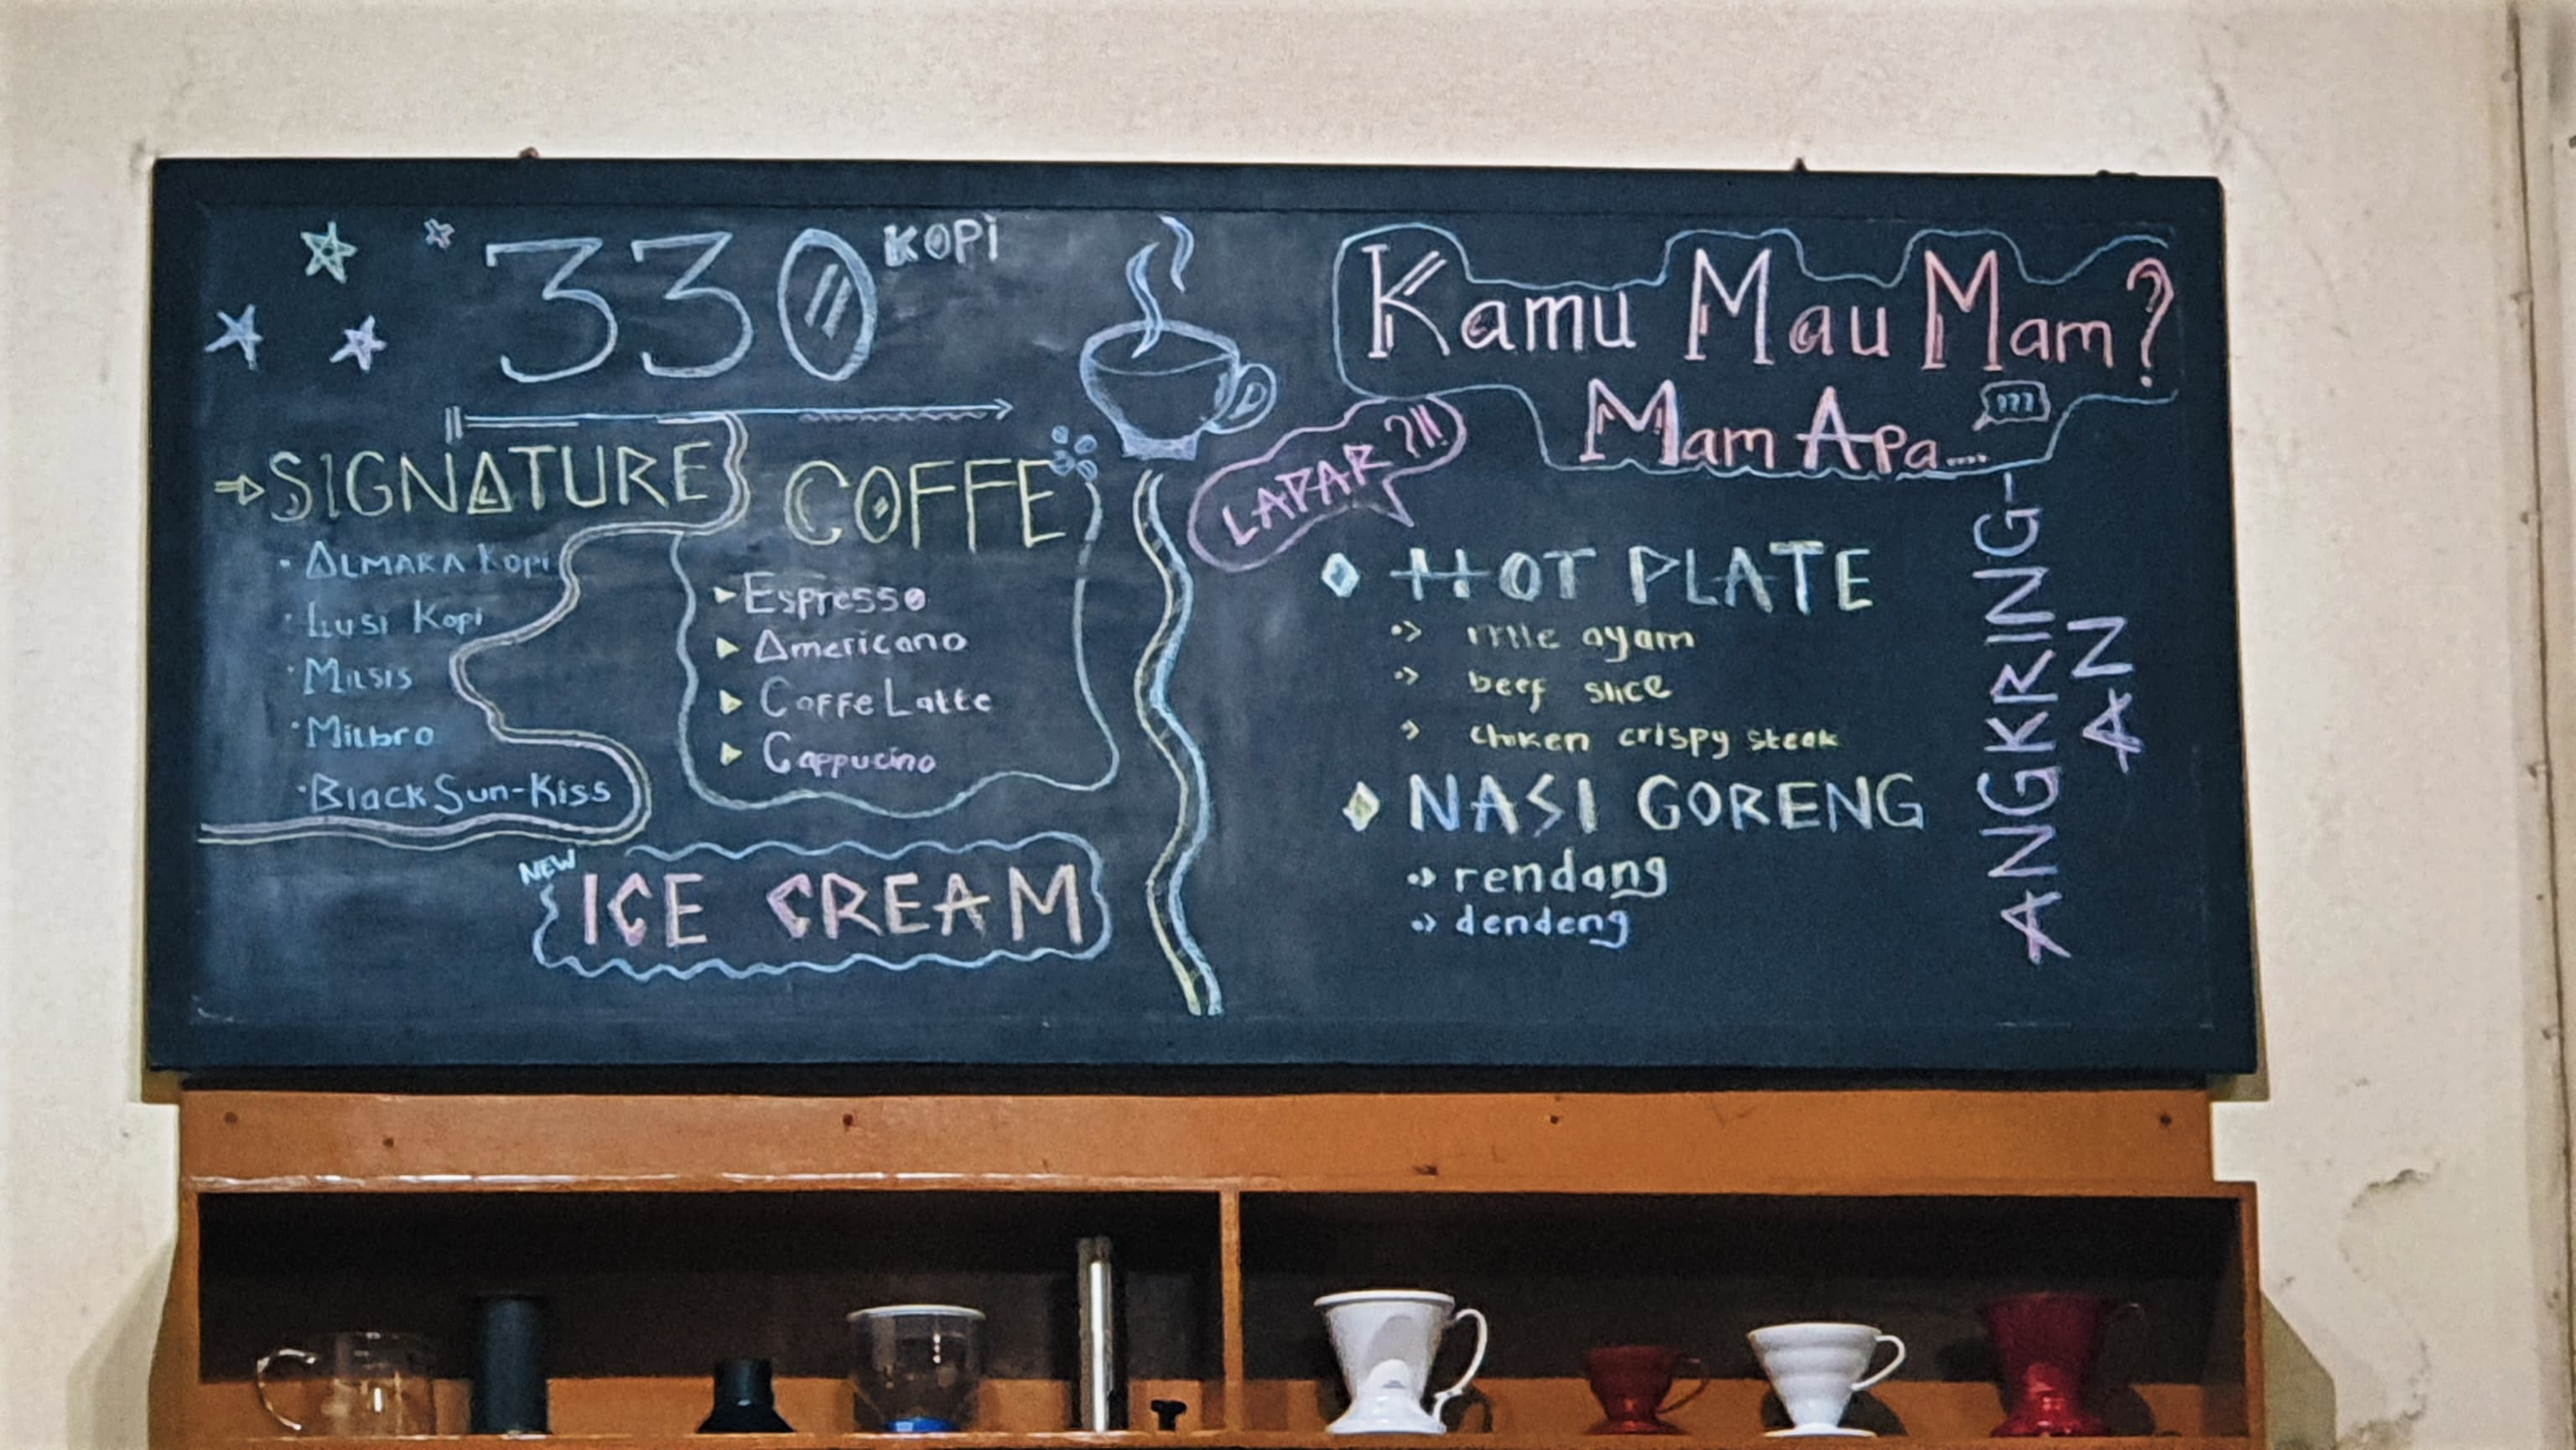 330 KOPI
SIGNATURE
ALMAKA Kopi
Lusi Kopi
Milsis
Milbro
Black Sun-Kiss
COFFE
Espresso
Americano
Coffe Latte
Cappucino
NEW
ICE CREAM
Kamu Mau Mam?
Mam Apa....
???
LAPAR?!!
HOT PLATE
ayam
beef slice
crispy steak
NASI GORENG
rendang
dendeng
ANGKRING-
AN